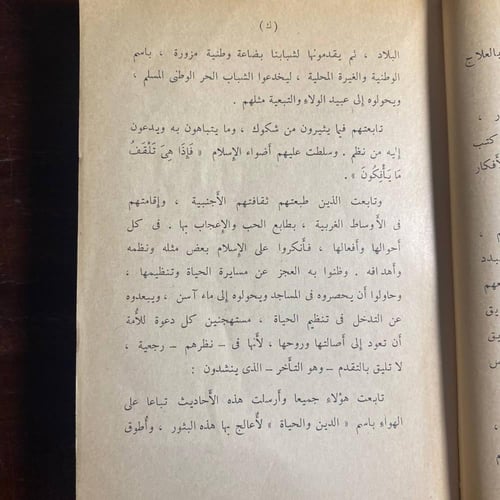 (ك)
البلاد ، ثم يقدمونها لشبابنا بضاعة وطنية مزورة ، باسم
الوطنية والغيرة المحلية ، ليخدعوا الشباب الحر الوطنى المسلم ،
ويحولوه إلى عبيد الولاء والتبعية مثلهم .
تابعتهم فيما يثيرون من شكوك ، وما يتباهون به ويدعون
إليه من نظم . وسلطت عليهم أضواء الإسلام « فَإِذَا هِىَ تَلْقَفُ
مَا يَأْفِكُونَ » .
وتابعت الذين طبعتهم ثقافتهم الأجنبية ، وإقامتهم
فى الأوساط الغربية ، بطابع الحب والإعجاب بها ، فى كل
أحوالها وأفعالها ، فأنكروا على الإسلام بعض مثله ونظمه
وأهدافه . وظنوا به العجز عن مسايرة الحياة وتنظيمها ،
وحاولوا أن يحصروه فى المساجد ويحولوه إلى ماء آسن ، ويبعدوه
عن التدخل فى تنظيم الحياة ، مستهجنين كل دعوة للأمة
أن تعود إلى أصالتها وروحها ، لأنها فى – نظرهم – رجعية ،
لا تليق بالتقدم – وهو التأخر – الذى ينشدون :
تابعت هؤلاء جميعا وأرسلت هذه الأحاديث تباعا على
الهواء باسم « الدين والحياة » لأعالج بها هذه البثور ، وأطوق
بالعلاج
كتب
لأفكار